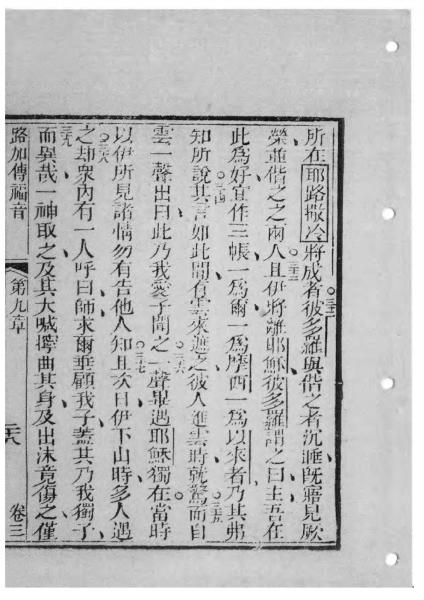 所在耶路撒冷將成者彼多羅與偕之者沉睡旣寤見厥
榮並偕之之兩人且伊將離耶穌彼多羅謂之曰主吾在
此為好宜作三帳一為爾一為摩西一為以來者乃其弗
知所說其言如此間有雲來遮之彼人進雲時就驚而自
雲一聲出曰此乃我愛子聞之一聲畢遇耶穌獨在當時
以伊所見諸情勿有告他人知且次日伊下山時多人遇
之却衆內有一人呼曰師求爾垂顧我子蓋其乃我獨子
而異哉一神取之及其大喊擰曲其身及出沫竟傷之僅
路加傳福音 第九章 卷三